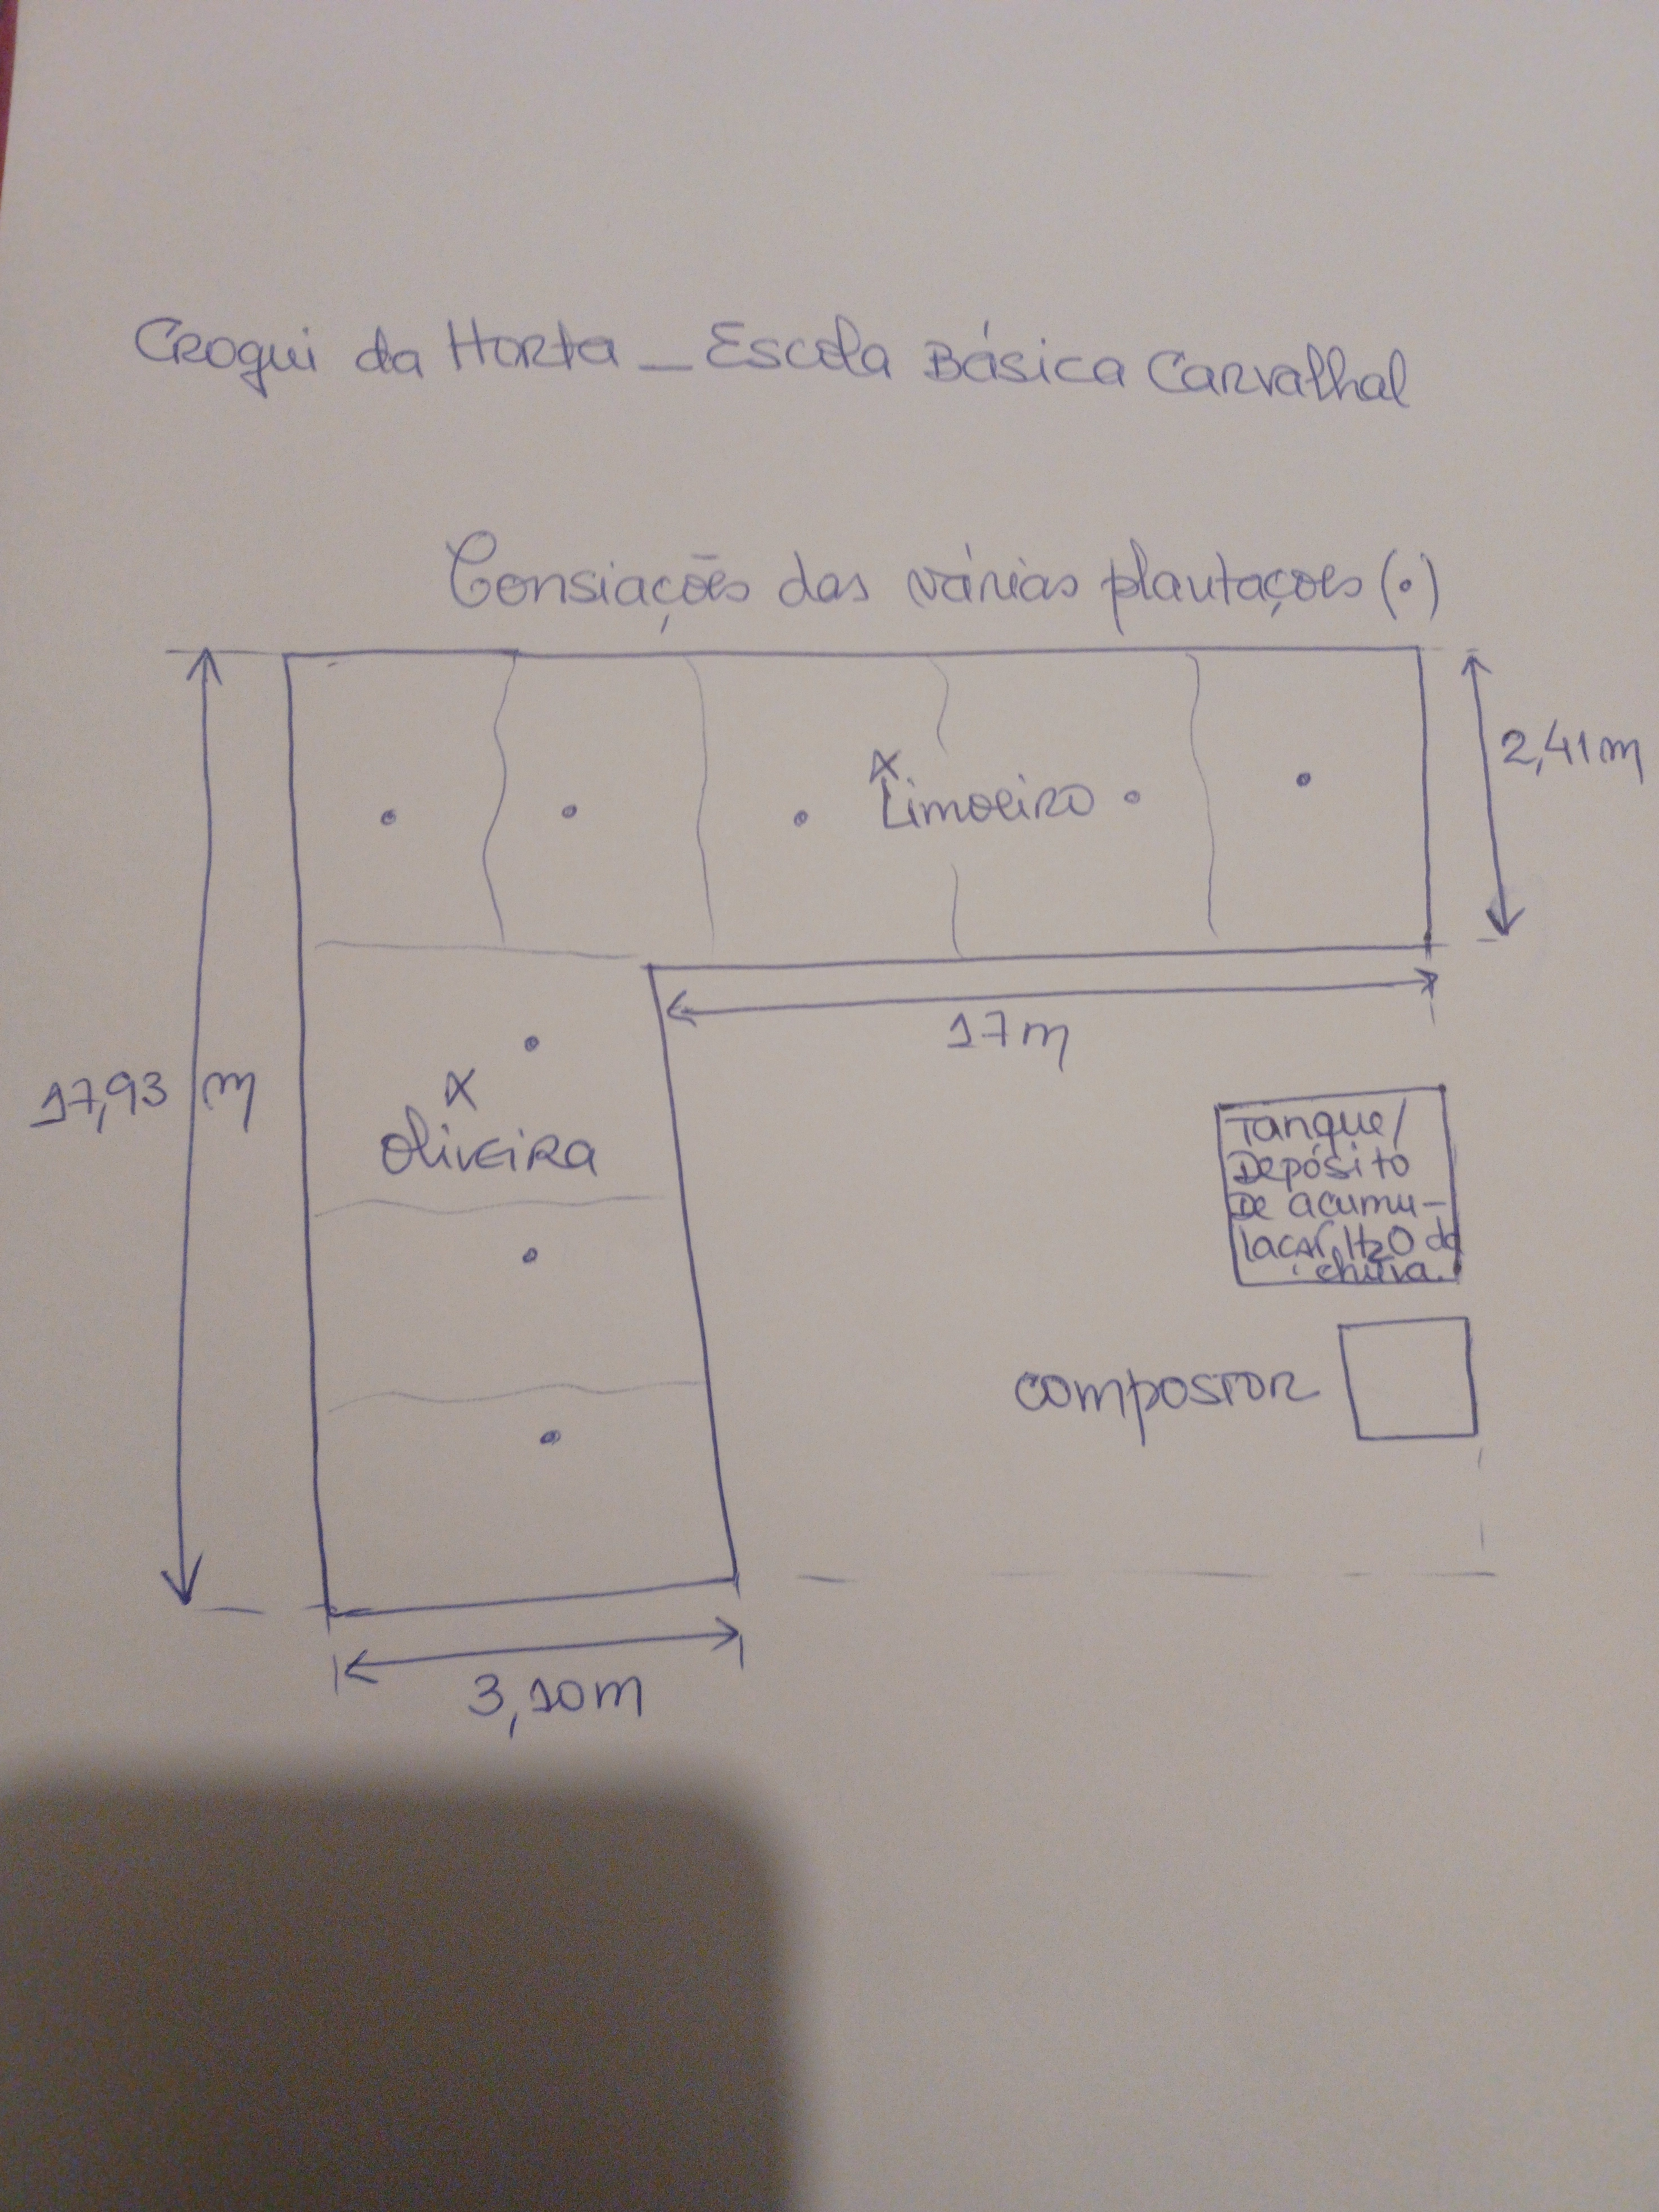 Croqui da Horta _ Escola Básica Carvalhal
Consiações das várias plantações (•)
2,41 m
x
Limoeiro
17 m
17,93 m
x
Oliveira
Tanque/
Depósito
De acumu-
lação H2O da
chuva.
compostor
3,10 m